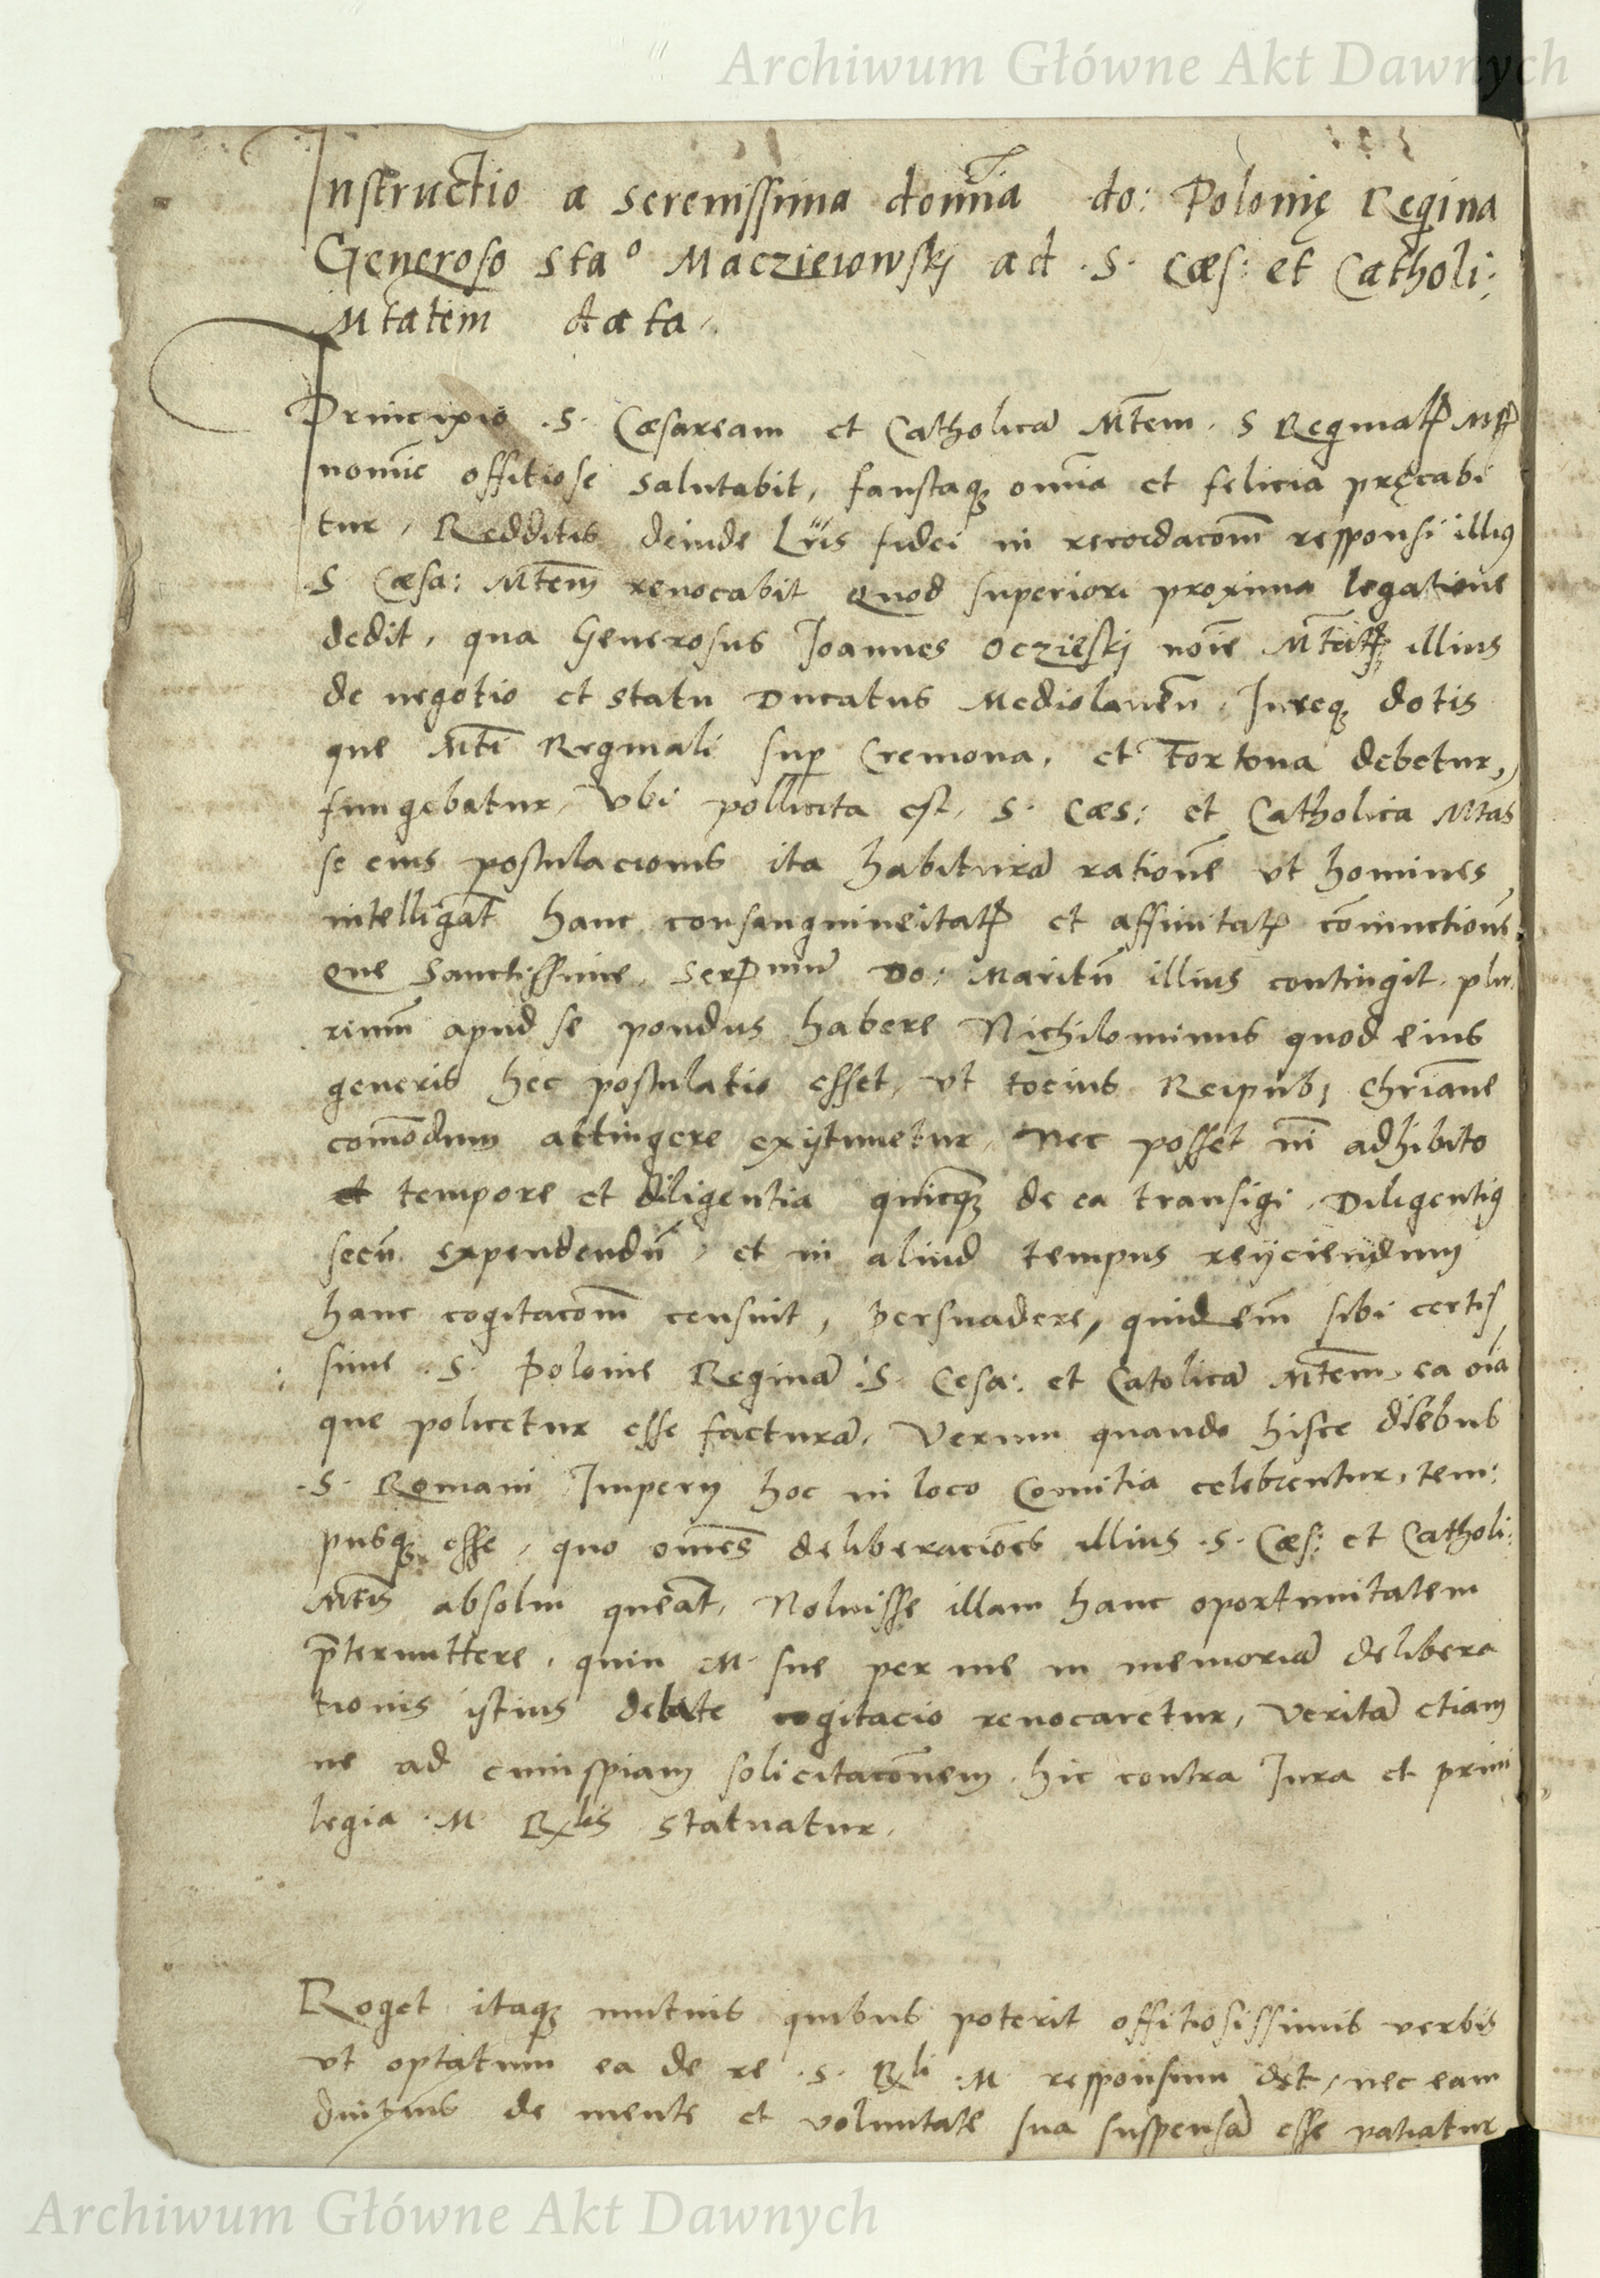 Archiwum Główne Akt Dawnych
Instructio a serenissima domina do: Polonię Regina
Generoso Sta⁰ Macziewowskj ad .S. Cæs: et Catholi:
Mtatem data.
Principio .S. Cæsaream et Catholicā Mtem. S Reginal
nomīe offitiose salutabit, faustaqꝫ omīa et felicia pręcabi
tur, Redditis deinde Lr̄is fidei in recordacōm responsi illiꝰ
S. Cæsa: Mtem revocabit quod superiori proxima legatione
dedit, qua Generosus Joannes Oczieskj noīe Mtātꝭ illius
de negotio et statu Ducatus Mediolaneñ. Jureqꝫ dotis
que Mti Reginali sup Cremona, et Tortona debetur,
fungebatur, Vbi pollicita est, S. Cæs: et Catholica Mtas
se eius postulacionis ita habiturā rationē vt homines
intelligāt hanc consanguineitatꝭ et affinitatꝭ cōniunctionē
que Sanctissime, Ser mū Do: Maritū illius contingit plu
rimū apud se pondus habere Nichilominus quod eius
generis hec postulatio esset, vt tocius Reipubꝫ Chr̄iane
comōdum attingere existimetur, Nec posset nī adhibito
et tempore et diligentia quicqꝫ de ea transigi, Diligentiꝰ
secū expendendū, et in aliud tempus reijciendum
hanc cogitacōm censuit, Persuadere, quidem sibi certis
sime .S. Polonie Reginā .S. Cesa: et Catolicā Mtem, ea oīa
que policetur esse facturā, Verum quando hisce diebus
.S. Romani Imperij hoc in loco Comitia celebrentur, tem:
pusqꝫ esse, quo omēs deliberaciōēs illius .S. Cæs: et Catholi:
Mtis absolui queāt, Noluisse illam hanc oportunitatem
p̄termittere, quin M. sue per me in memoriā delibera
tionis istius cogitacio revocaretur, Veritā etiam
ne ad cuiuspiam solicitacōnem hic contra Jura et priui
legia .M. Rlis statuatur.
Roget itaqꝫ quibus poterit offitiosissimis verbis
vt optatum ea de re .S. Rli .M. responsum det, nec eam
diutius de mente et voluntate sua suspensā esse patiatur
Archiwum Główne Akt Dawnych